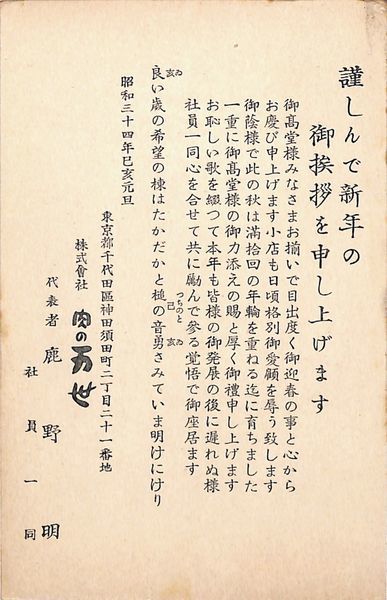 謹しんで新年の
御挨拶を申し上げます
御髙堂様みなさまお揃いで目出度く御迎春の事と心から
お慶び申上げます小店も日頃格別御愛顧を辱う致します
御陰様で此の秋は滿拾回の年輪を重ねる迄に育ちました
一重に御髙堂様の御力添えの賜と厚く御禮申し上げます
お恥しい歌を綴つて本年も皆様の御発展の後に遅れぬ様
社員一同心を合せて共に勵んで參る覚悟で御座居ます
良い歳の希望の棟はたかだかと槌の音勇さみていま明けにけり
亥ゐ
つちのと
己
亥ゐ
昭和三十四年己亥元旦
東京都千代田區神田須田町二丁目二十一番地
株式會社 肉の万世
代表者 鹿野 明
社員一同